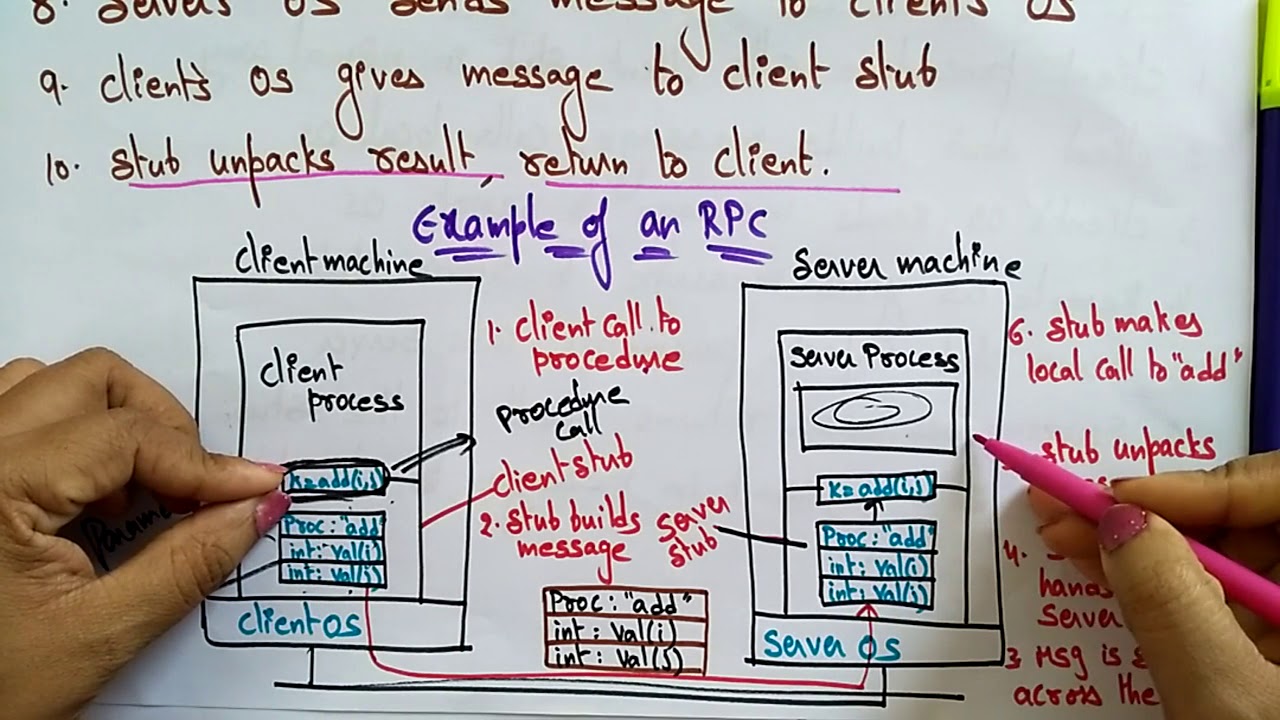 8. Servers OS sends message to clients OS
9. client's os gives message to client stub
10. stub unpacks result, return to client.
Example of an RPC
client machine
client process
k=add(i,j)
Proc: "add"
int: val(i)
int: val(j)
client OS
1. client call to
procedure
procedure
call
client stub
2. stub builds
message
Server
stub
Proc: "add"
int: val(i)
int: val(j)
Server machine
Server Process
k=add(i,j)
Proc: "add"
int: val(i)
int: val(j)
Server OS
6. stub makes
local call to "add"
stub unpacks
4.
Server
3 Msg is
across the